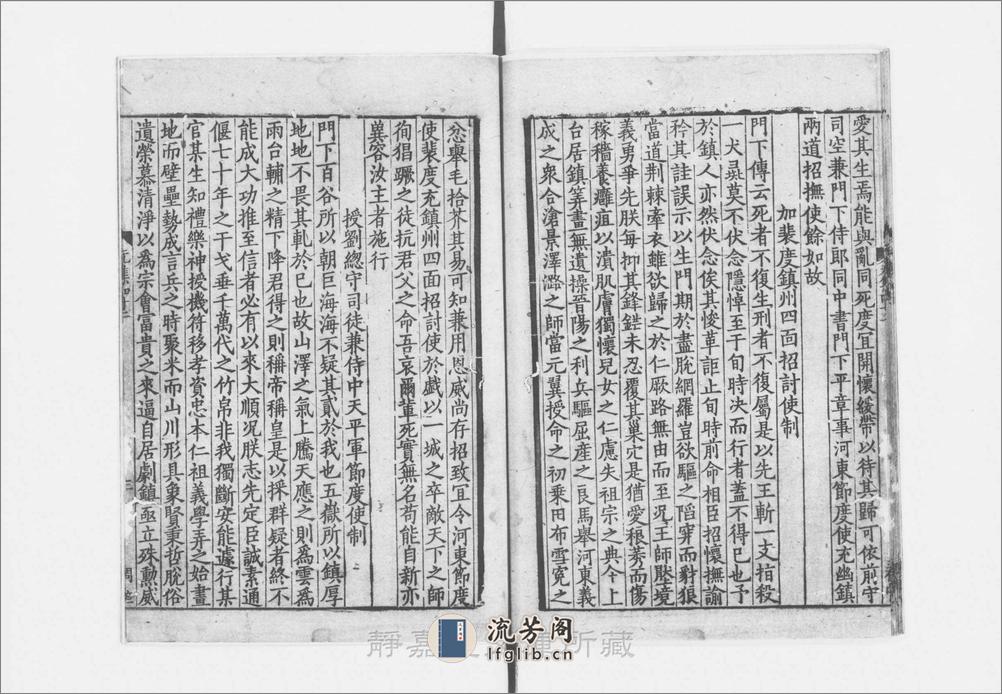 愛其生焉能與亂同死度宜開懷緩帶以待其歸可依前守
司空兼門下侍郎同中書門下平章事河東節度使充幽鎮
兩道招撫使餘如故
加裴度鎮州四面招討使制
門下傳云死者不復生刑者不復屬是以先王斬一支指殺
一犬彘莫不伏念隱悼至于旬時决而行者蓋不得已也予
於鎮人亦然伏念俟其悛革詎止旬時前命相臣招懷撫諭
矜其詿誤示以生門期於盡脫網羅豈欲驅之陷穽而豺狼
當道荊棘牽衣雖欲歸之於仁厥路無由而至況王師壓境
義勇爭先朕每抑其鋒鋩未忍覆其巢穴是猶愛稂莠而傷
稼穡養癰疽以潰肌膚獨懷兒女之仁慮失祖宗之典今上
台居鎮筭畫無遺操晉陽之利兵驅屈產之良馬舉河東義
成之衆合滄景澤潞之師當元翼授命之初乗田布雪寃之
忿舉毛拾芥其易可知兼用恩威尚存招致宜令河東節度
使裴度充鎮州四面招討使於戲以一城之卒敵天下之師
徇猖獗之徒抗君父之命吾哀爾輩死實無名苟能自新亦
冀容汝主者施行
授劉總守司徒兼侍中天平軍節度使制
門下百谷所以朝巨海海不疑其貳於我也五嶽所以鎮厚
地地不畏其軋於已也故山澤之氣上騰天應之則爲雲爲
雨台輔之精下降君得之則稱帝稱皇是以採群疑者終不
能成大功推至信者必有以來大順況朕志先定臣誠素通
偃七十年之干戈垂千萬代之竹帛非我獨斷安能遽行某
官某生知禮樂神授機符移孝資忠本仁祖義學弄之始畫
地而壁壘勢成言兵之時聚米而山川形具象賢秉哲脫俗
遺榮慕清淨以為宗會富貴之來逼自居劇鎮亟立殊勲威
元集四十三
三
流芳阁
lfglib.cn
靜嘉 所藏